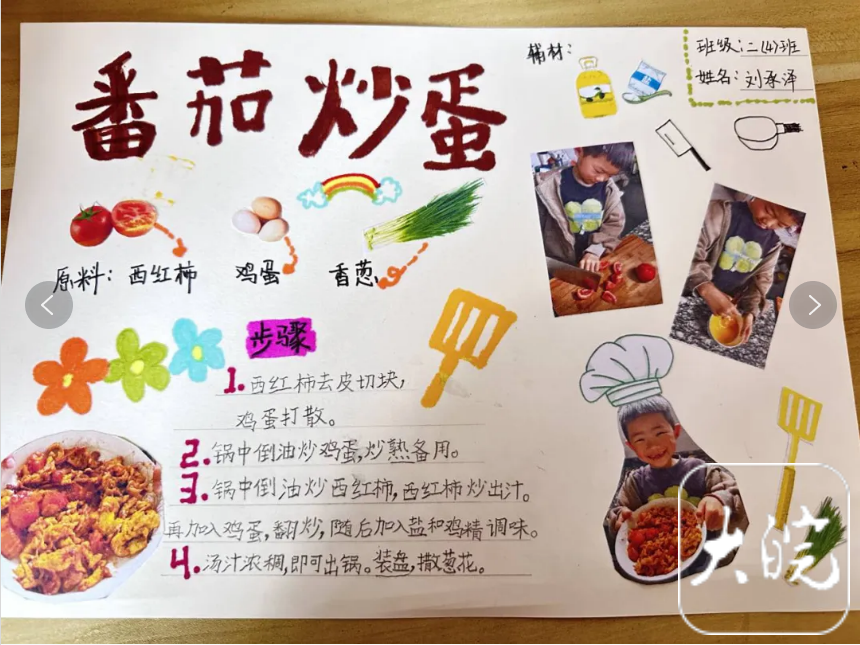 番茄炒蛋
辅材：
班级：二（4）班
姓名：刘承泽
原料：西红柿 鸡蛋 香葱
步骤
1.西红柿去皮切块，
鸡蛋打散。
2.锅中倒油炒鸡蛋，炒熟备用。
3.锅中倒油炒西红柿，西红柿炒出汁。
再加入鸡蛋，翻炒，随后加入盐和鸡精调味。
4.汤汁浓稠，即可出锅。装盘，撒葱花。
大皖